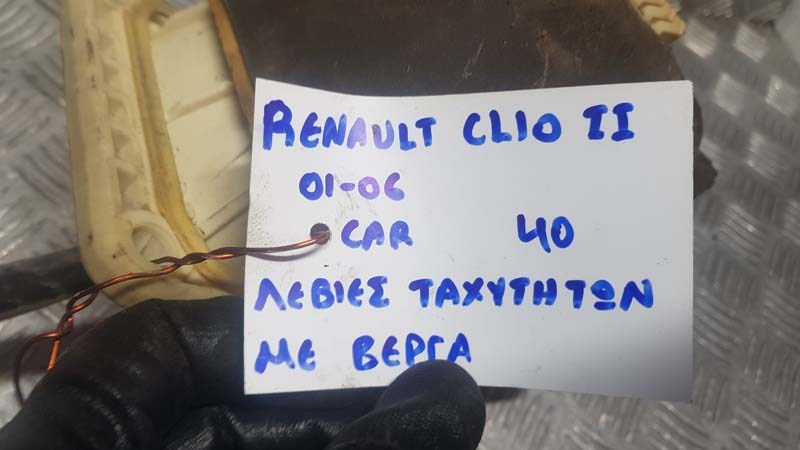 RENAULT CLIO II
01-06
CAR 40
ΛΕΒΙΕΣ ΤΑΧΥΤΗΤΩΝ
ΜΕ ΒΕΡΓΑ